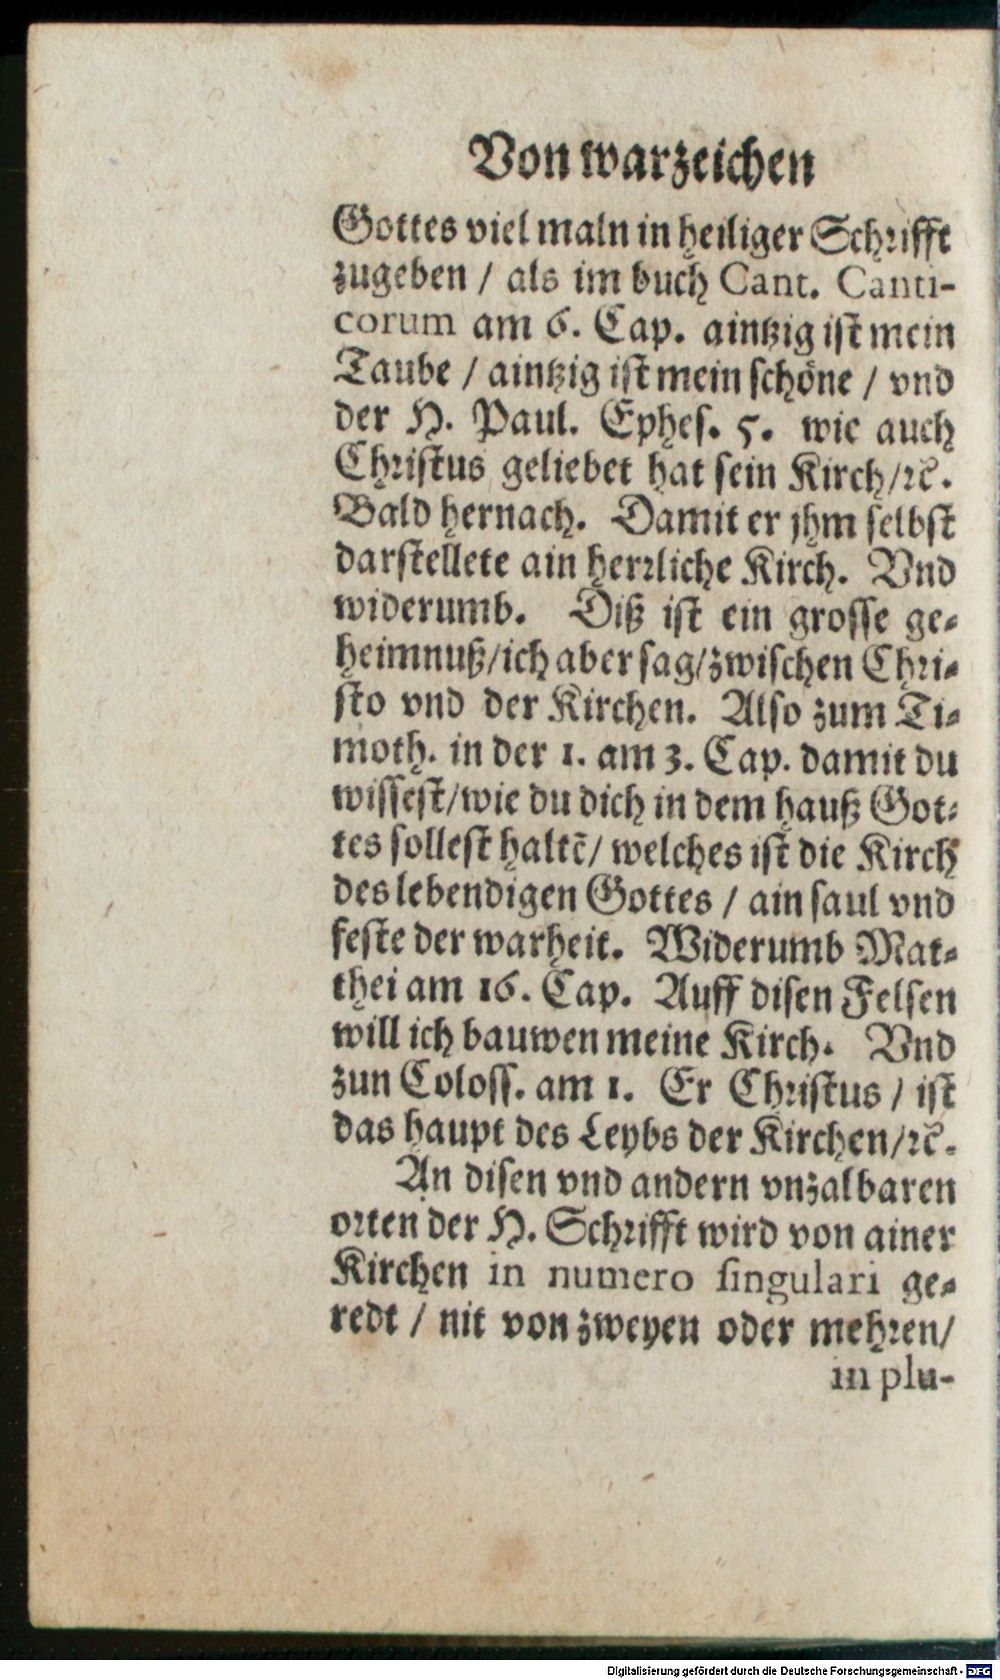 Von warzeichen
Gottes viel maln in heiliger Schrifft
zugeben / als im buch Cant. Canti-
corum am 6. Cap. aintzig ist mein
Taube / aintzig ist mein schöne / vnd
der H. Paul. Ephes. 5. wie auch
Christus geliebet hat sein Kirch/ꝛc.
Bald hernach. Damit er jhm selbst
darstellete ain herrliche Kirch. Vnd
widerumb. Diß ist ein grosse ge-
heimnuß/ich aber sag/zwischen Chri-
sto vnd der Kirchen. Also zum Ti-
moth. in der 1. am 3. Cap. damit du
wissest/wie du dich in dem hauß Got-
tes sollest haltē/ welches ist die Kirch
des lebendigen Gottes / ain saul vnd
feste der warheit. Widerumb Mat-
thei am 16. Cap. Auff disen Felsen
will ich bauwen meine Kirch. Vnd
zun Coloss. am 1. Er Christus / ist
das haupt des Leybs der Kirchen/ꝛc.
An disen vnd andern vnzalbaren
orten der H. Schrifft wird von ainer
Kirchen in numero singulari ge-
redt / nit von zweyen oder mehren/
in plu-
Digitalisierung gefördert durch die Deutsche Forschungsgemeinschaft - DFG